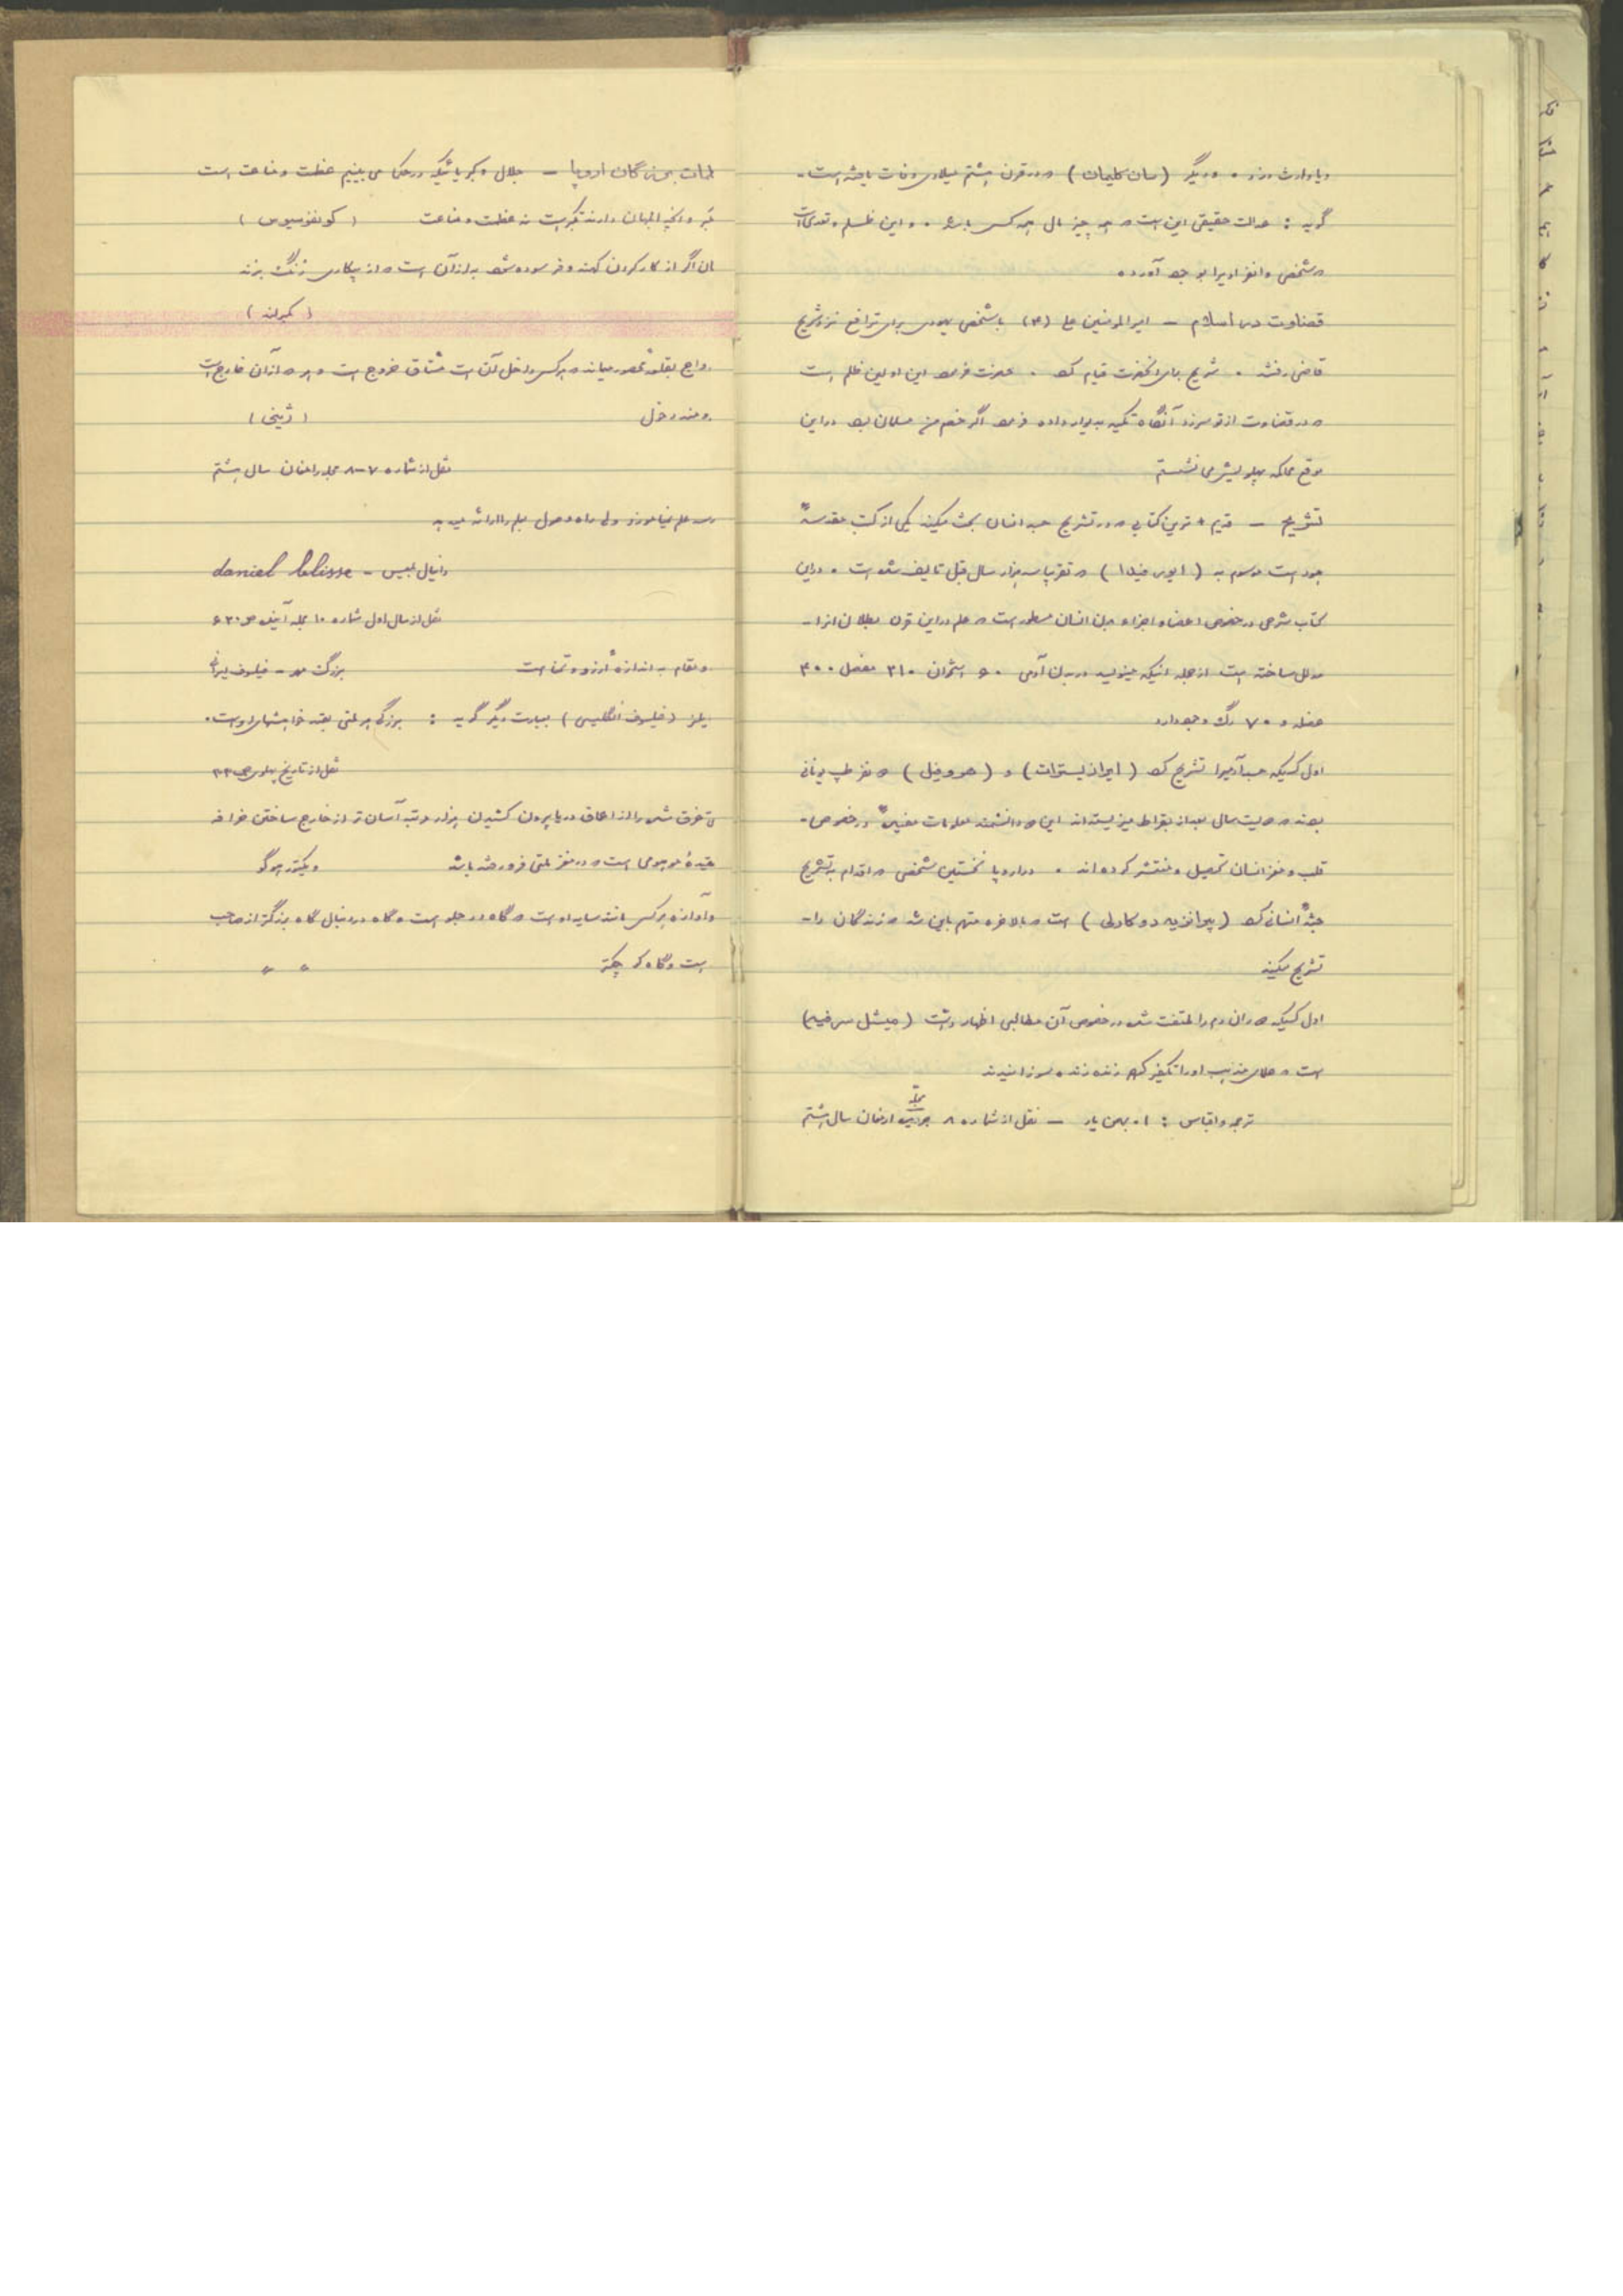 دنیا وارث دزد . و دیگر (سان کلیمان) که در قرن هشتم میلادی وفات یافته است -
گوید : عدالت حقیقی این است که همه چیز مال همه کس باشد . و این ظلم و تعدی است
که شخص و انفراد را بوجود آورده
قضاوت در اسلام – امیر المومنین علی (ع) با شخص یهودی برای ترافع نزد شریح
قاضی رفتند . شریح بپای آنحضرت قیام کرد . حضرت فرمود این اولین ظلم است
که در قضاوت از تو سر زد آنگاه تکیه بدیوار داده فرمود اگر خصم من مسلمان بود در این
موقع محاکمه پهلویش می نشستم
تشریح – قدیم ترین کتابی که در تشریح جسد انسان بحث میکند یکی از کتب مقدسهٔ
هنود است موسوم به ( ایورفیدا ) که تقریبا سه هزار سال قبل تالیف شده است . در این
کتاب شرحی در خصوص اعضاء و اجزاء بدن انسان مسطور است که علم در این قرن بطلان انرا -
مدلل ساخته است از جمله اینکه مینویسد در بدن آدمی ۶۰ استخوان ۲۱۰ مفصل ۴۰۰
عضله و ۷۰ رگ وجود دارد
اول کسیکه جسد آدمیرا تشریح کرد ( ایرازیستراث ) و ( هروفیل ) دو نفر طبیب یونانی
بودند که دویست سال بعد از بقراط میزیسته اند این دو دانشمند معلومات مفیدهٔ در خصوص -
قلب و مغز انسان تحصیل و منتشر کرده اند . در اروپا نخستین شخصی که اقدام به تشریح
جثهٔ انسانی کرد است که بالاخره متهم باین شد که زندگان را -
تشریح میکند
اول کسیکه دوران دم را ملتفت شد و در خصوص آن مطالبی اظهار داشت (میشل سرفیه)
است که علمای مذهب او را تکفیر کرده زنده زنده سوزانیدند
ترجمه و اقتباس : ا . بهمن یار – نقل از شماره ۸ مجلهٔ ارمغان سال هشتم
کلمات بزرگان اروپا – جلال و کبریائیکه در حکما می بینیم عظمت و مناعت است
و آنچه ابلهان دارند تکبر است نه عظمت و مناعت ( کونفوسیوس )
اگر از کار کردن کهنه و فرسوده شود به از آن است که از بیکاری زنگ بزند
ازدواج بقلعهٔ محصور میماند که هر کس داخل آن است مشتاق خروج است و هر که از آن خارج است
آرزومند دخول
نقل از شماره ۷-۸ مجله ارمغان سال هشتم
مدرسه علم نیاموزد ولی راه وصول بعلم را ارائه میدهد
دانیال لبیس - daniel lebisse
نقل از سال اول شماره ۱۰ مجله آینده ص ۶۳۰
مقام به اندازه آرزو و تمنا است بزرگمهر - فیلسوف ایرانی
(فیلسوف انگلیسی) بعبارت دیگر گوید : بزرگی هر ملتی بقدر خواهشهای اوست .
نقل از تاریخ پهلوی ص ۳۳
کشتی غرق شده را از اعماق دریا بیرون کشیدن هزار مرتبه آسان تر از خارج ساختن خرافه
و عقیدهٔ موهومی است که در مغز ملتی فرو رفته باشد ویکتور هوگو
نام و آوازه هر کس مانند سایه او است که گاه در جلو است و گاه در دنبال گاه بزرگتر از صاحب
است و گاه کوچکتر " "